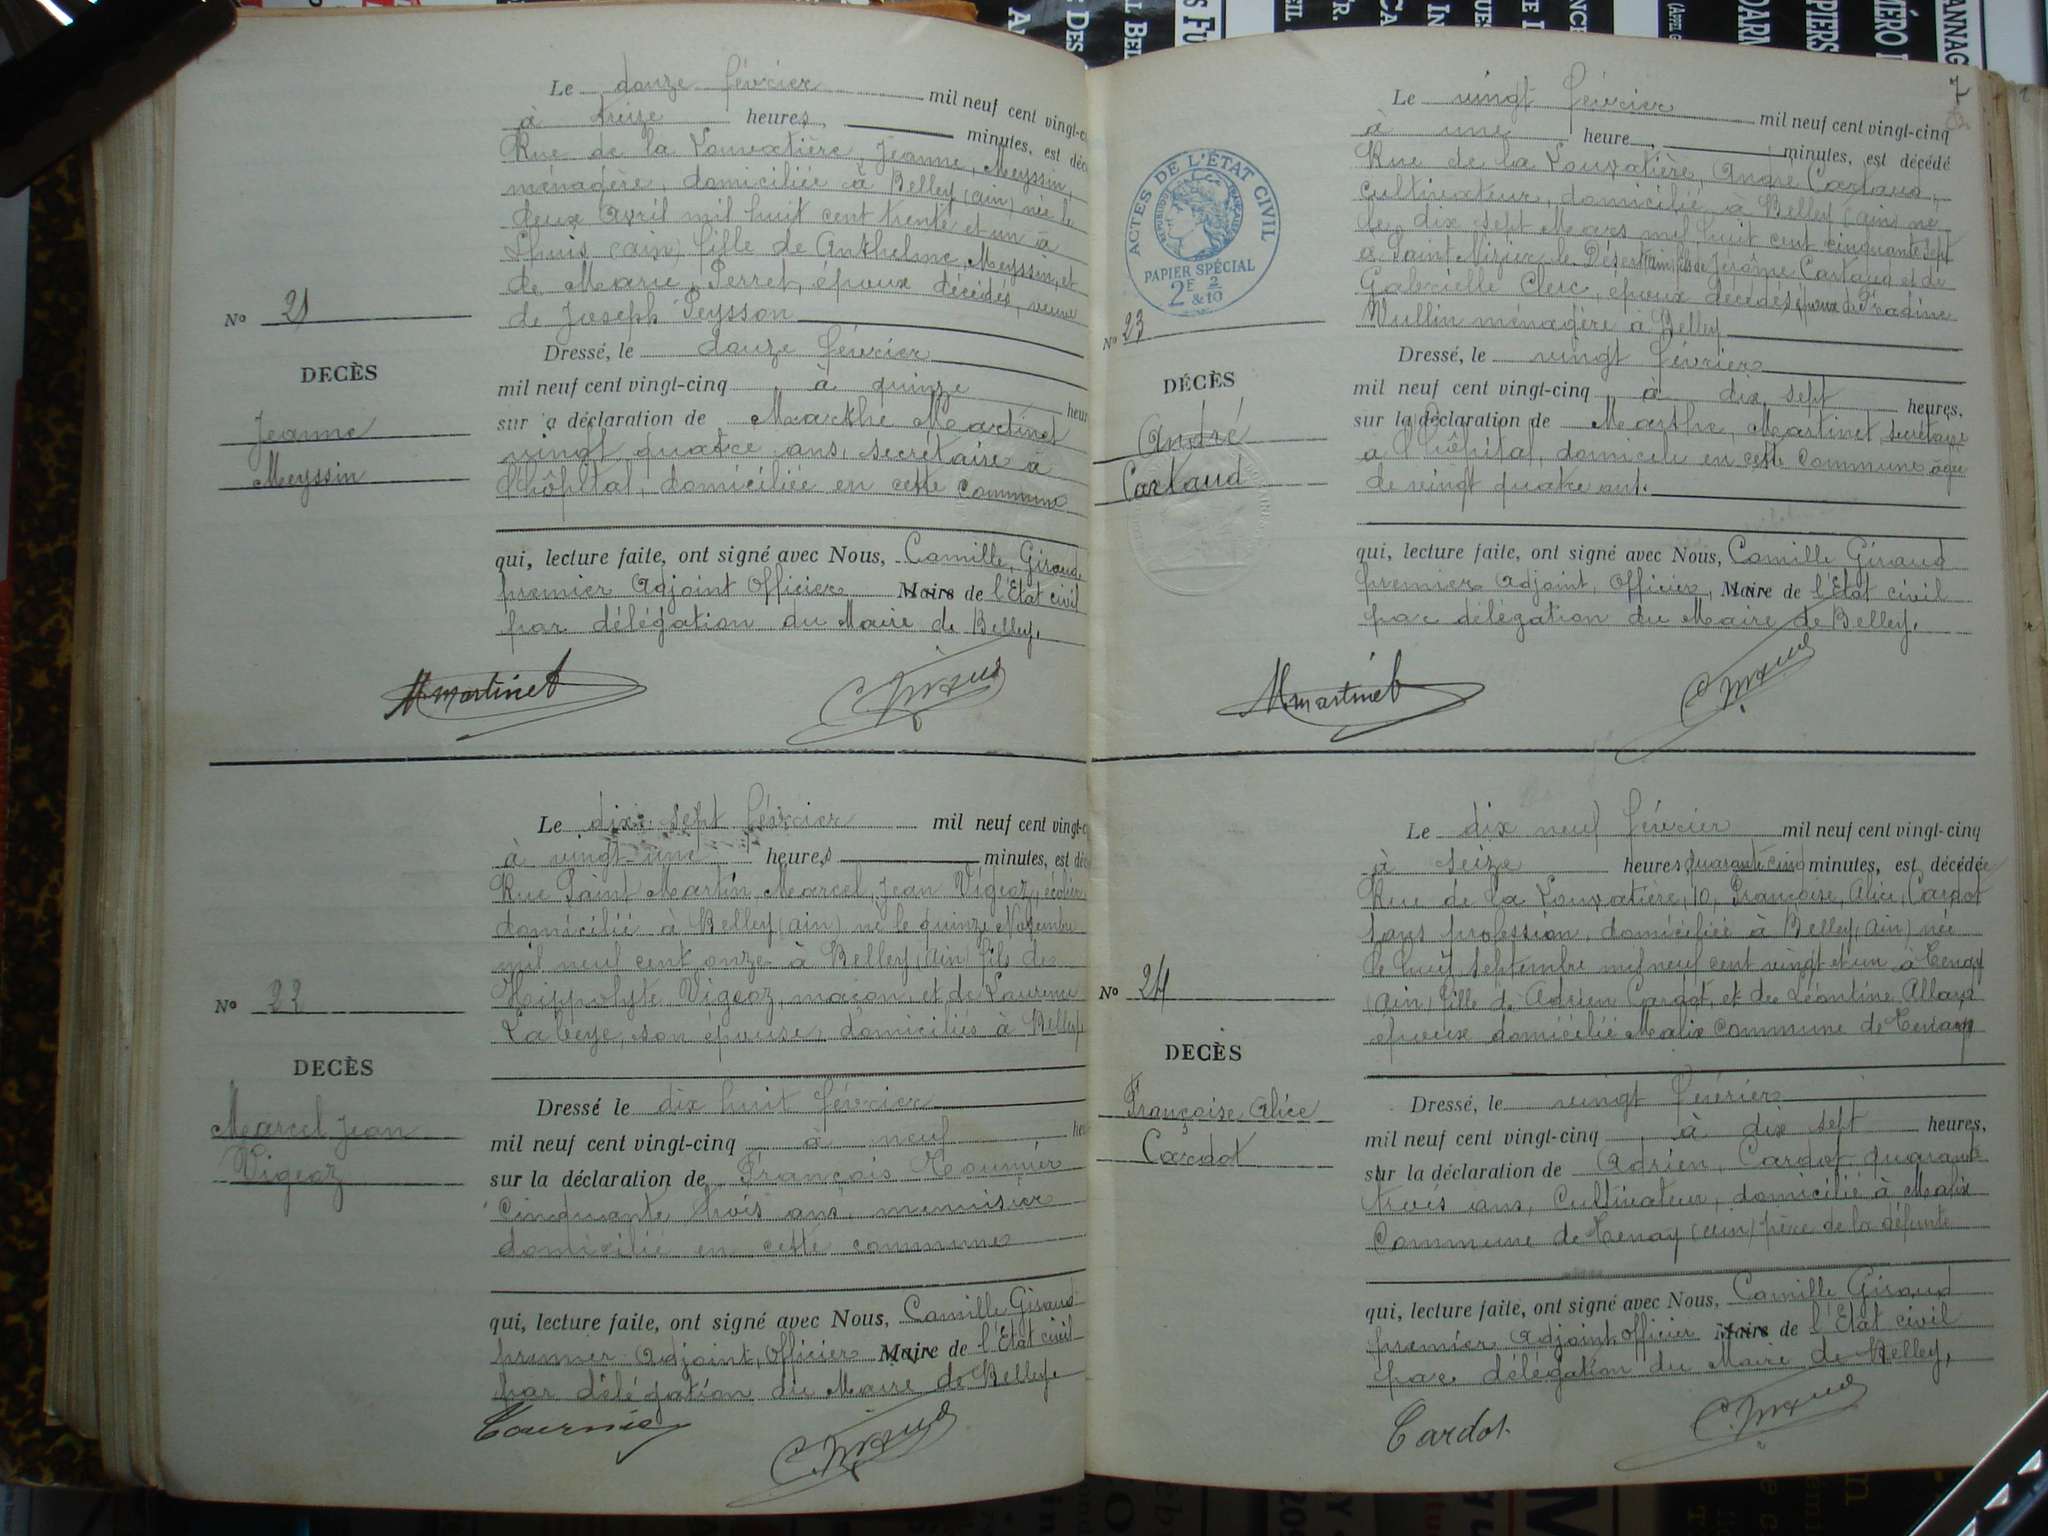 Le douze février mil neuf cent vingt-c
à treize heures, minutes, est déc
Rue de la Louvatière, Jeanne, Meyssin,
ménagère, domiciliée à Belley (ain) née le
deux Avril mil huit cent trente et un à
Lhuis (ain) fille de Anthelme Meyssin et
de Marie Perret, époux décédés, veuve
de Joseph Peysson
No 21
DECÈS
Jeanne
Meyssin
Dressé, le douze février
mil neuf cent vingt-cinq à quinze heur
sur la déclaration de Marthe Martinet
vingt quatre ans, secrétaire à
l'hôpital, domiciliée en cette commune
qui, lecture faite, ont signé avec Nous, Camille, Giraud
premier Adjoint Officier Maire de l'Etat civil
par délégation du Maire de Belley.
Mmartinet C. Giraud
Le dix sept février mil neuf cent vingt-c
à vingt une heures minutes, est déc
Rue Saint Martin Marcel, Jean Vigeoz, écolier
domicilié à Belley (ain) né le quinze Novembre
mil neuf cent onze à Belley (ain) fils de
Hippolyte Vigeoz, maçon et de Laurence
Labeye, son épouse, domiciliés à Belley
No 22
DECÈS
Marcel Jean
Vigeoz
Dressé le dix huit février
mil neuf cent vingt-cinq à neuf heu
sur la déclaration de François Tournier
cinquante trois ans, menuisier
domicilié en cette commune
qui, lecture faite, ont signé avec Nous, Camille Giraud
premier Adjoint, Officier Maire de l'Etat civil
par délégation du Maire de Belley.
Tournier C. Giraud
7
Le vingt février mil neuf cent vingt-cinq
à une heure, minutes, est décédé
Rue de la Louvatière, André Cartaud,
cultivateur, domicilié à Belley (ain) né
le dix sept Mars mil huit cent cinquante sept
à Saint Nizier le Désert (ain) fils de Jérôme Cartaud et de
Gabrielle Clerc, époux décédés, époux de
Vullin ménagère à Belley
ACTES DE L'ÉTAT CIVIL
RÉPUBLIQUE FRANÇAISE
PAPIER SPÉCIAL
2E 2/10
& 10
No 23
DÉCÈS
André
Cartaud
Dressé, le vingt février
mil neuf cent vingt-cinq à dix sept heures,
sur la déclaration de Marthe, Martinet secrétaire
à l'hôpital, domiciliée en cette commune âgée
de vingt quatre ans.
qui, lecture faite, ont signé avec Nous, Camille Giraud
premier adjoint, Officier, Maire de l'Etat civil
par délégation du Maire de Belley.
Mmartinet C. Giraud
Le dix neuf février mil neuf cent vingt-cinq
à seize heures quarante cinq minutes, est décédée
Rue de la Louvatière, 10, Françoise, Alice, Cardot
sans profession, domiciliée à Belley (ain) née
le huit septembre mil neuf cent vingt et un à Tenay
(ain) fille de Adrien Cardot, et de Léontine Allard
époux domicilié Malix commune de Tenay
No 24
DECÈS
Françoise Alice
Cardot
Dressé, le vingt février
mil neuf cent vingt-cinq à dix sept heures,
sur la déclaration de Adrien, Cardot quarante
trois ans, cultivateur, domicilié à Malix
Commune de Tenay (ain) père de la défunte
qui, lecture faite, ont signé avec Nous, Camille Giraud
premier Adjoint Officier Maire de l'Etat civil
par délégation du Maire de Belley,
Cardot. C. Giraud